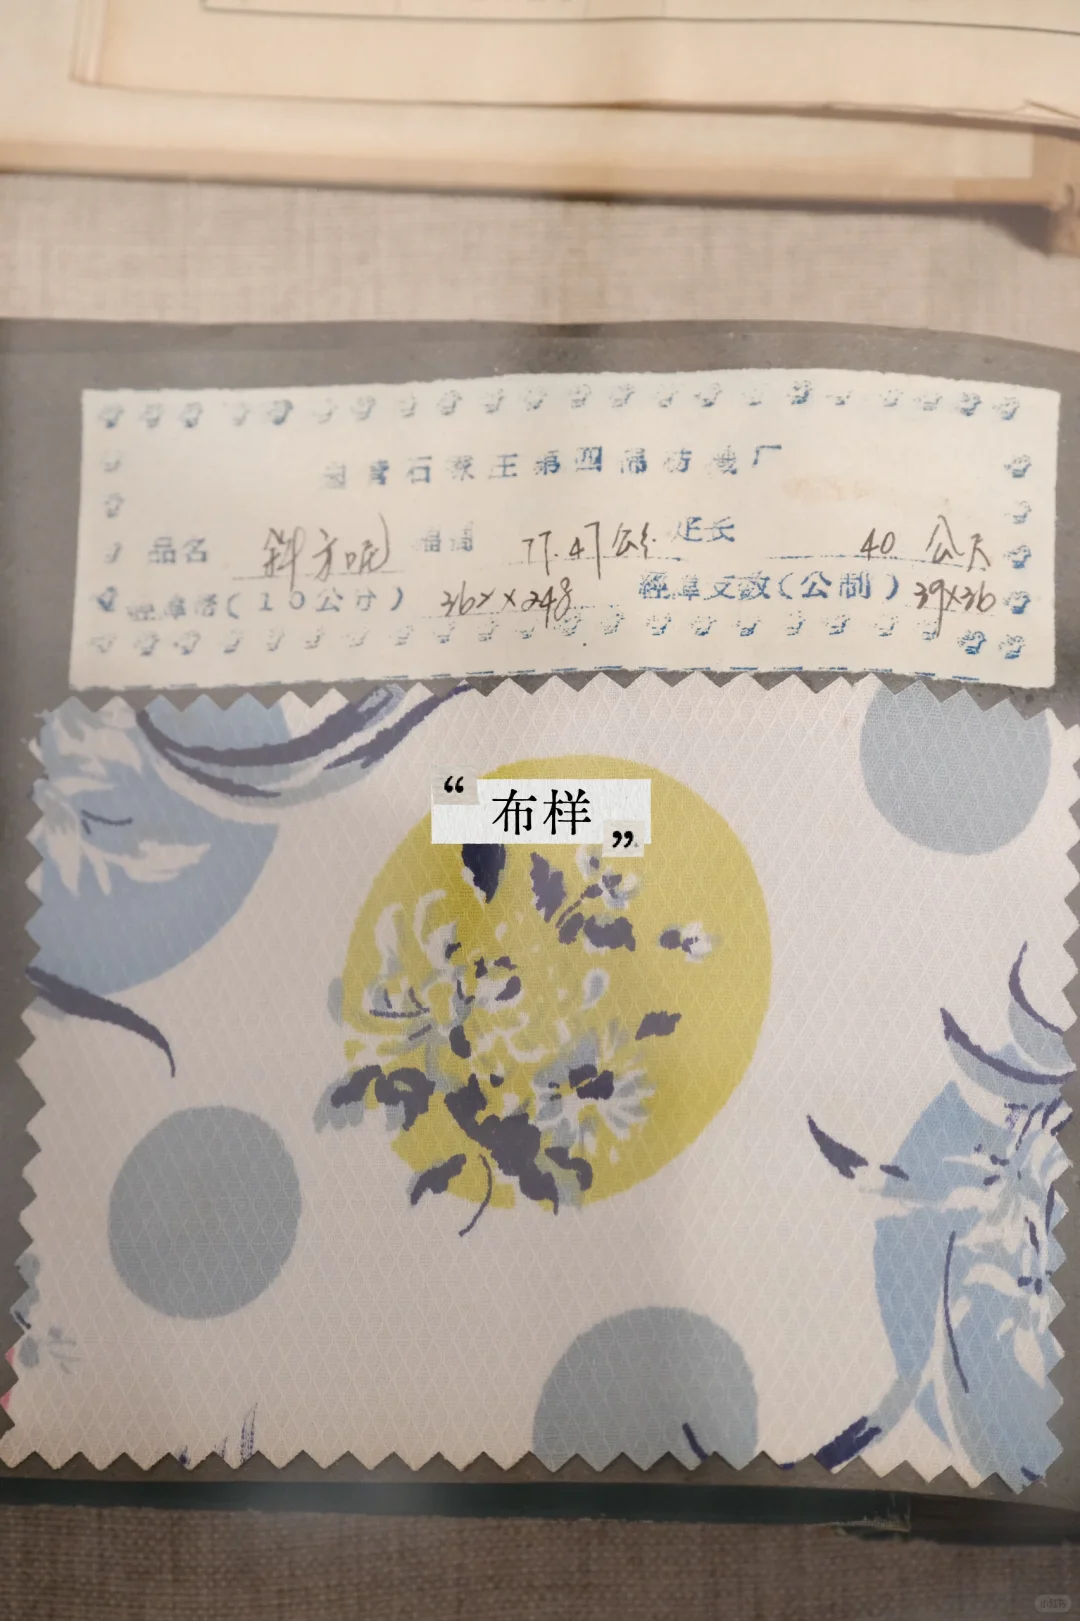 国营石家庄第四棉纺织厂
品名 斜方呢 幅阔 77.47公分 疋长 40 公尺
經韋密(10公分) 362×248 經韋支数(公制) 39×36
“布样”
小红书